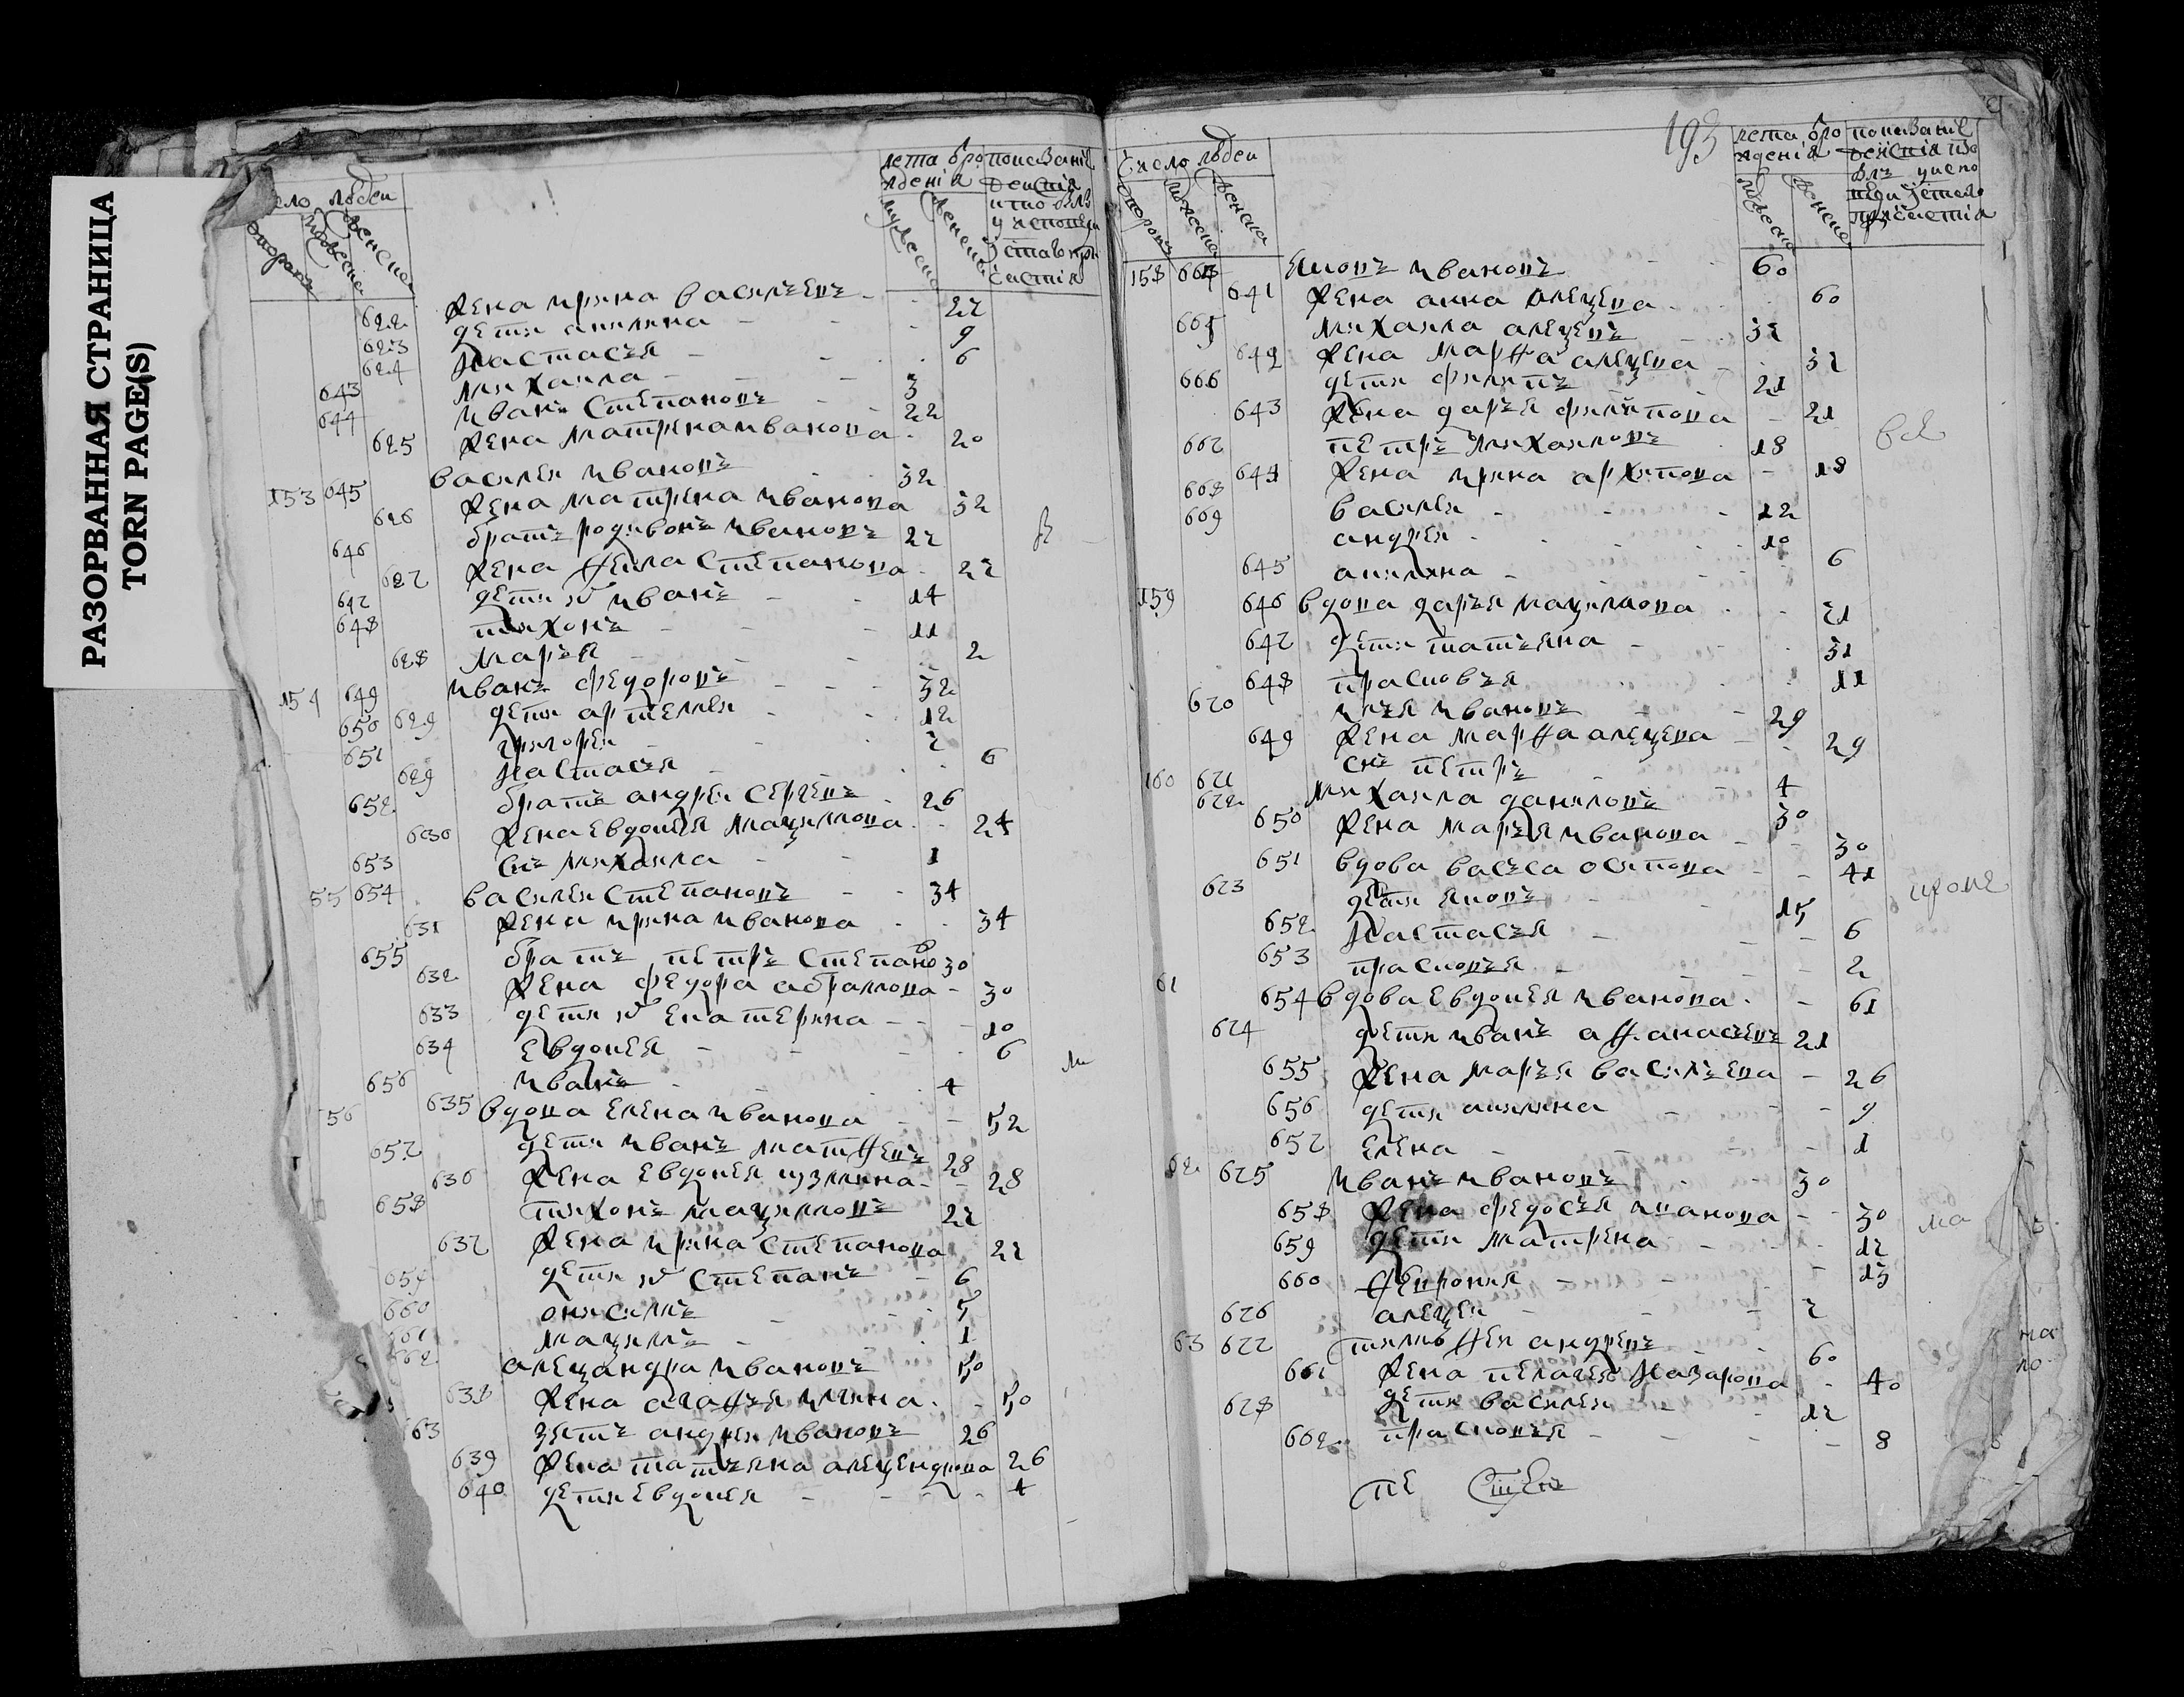 РАЗОРВАННАЯ СТРАНИЦА
TORN PAGE(S)
число людей
лета рождения
622 жена ирина васильева 27
623 дети акилина 9
624 настасья 6
643 михаила 3
644 иванъ степановъ 22
625 жена матрена иванова 20
153 645 василей ивановъ 32
626 жена матрена иванова 32
646 братъ родивонъ ивановъ 27
627 жена фекла степанова 27
647 дети иванъ 14
648 тихонъ 11
628 марья 2
154 649 иванъ федоровъ 32
650 629 дети артемей 12
651 григорей 7
629 настасья 6
652 братъ андрей сергеевъ 26
630 жена евдокея максимова 24
653 снъ михаила 1
55 654 василей степановъ 34
631 жена ирина иванова 34
655 братъ петръ степано 30
632 жена федора абрамова 30
633 дети екатерина 10
634 евдокея 6
656 иванъ 4
56 635 вдова елена иванова 52
657 дети иванъ матфеевъ 28
636 жена евдокея кузмина 28
658 тихонъ максимовъ 27
637 жена ирина степанова 27
659 дети степанъ 6
660 онисимъ 5
661 максимъ 1
662 александра ивановъ 50
638 жена агафья ильина 50
63 зять андрей ивановъ 26
639 жена татьяна александрова 26
640 дети евдокея 4
193
число людей
лета рождения
158 664 яковъ ивановъ 60
641 жена анна алексеева 60
665 михаила алексеевъ 37
642 жена марфа алексеева 37
666 дети филипъ 21
643 жена дарья филипова 21
667 петръ михаиловъ 18
644 жена ирина архипова 18
668 василей 12
669 андрей 10
645 акилина 6
159 646 вдова дарья максимова 71
647 дети татьяна 31
648 прасковья 11
670 илья ивановъ 29
649 жена марфа алексеева 29
160 671 снъ петръ 4
672 михаила даниловъ 30
650 жена марья иванова 30
651 вдова васса осипова 41
673 дети яковъ 15
652 настасья 6
653 прасковья 2
61 654 вдова евдокея иванова 61
674 дети иванъ афанасьевъ 21
655 жена марья васильева 26
656 дети акилина 9
657 елена 1
62 675 иванъ ивановъ 30
658 жена федосья иванова 30
659 дети матрена 17
660 феврония 13
676 алексей 7
63 677 тимофей андреевъ 60
661 жена пелагея назарова 40
678 дети василей 17
662 прасковья 8